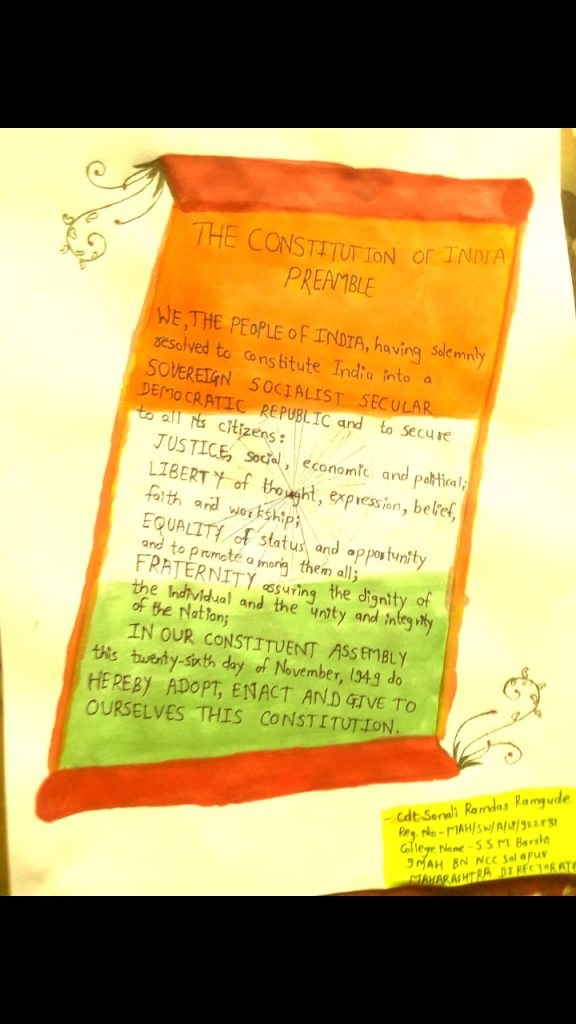 THE CONSTITUTION OF INDIA
PREAMBLE
WE, THE PEOPLE OF INDIA, having solemnly
resolved to constitute India into a
SOVEREIGN SOCIALIST SECULAR
DEMOCRATIC REPUBLIC and to secure
to all its citizens:
JUSTICE, social, economic and political;
LIBERTY of thought, expression, belief,
faith and workship;
EQUALITY of status and opportunity
and to promote among them all;
FRATERNITY assuring the dignity of
the individual and the unity and integrity
of the Nation;
IN OUR CONSTITUENT ASSEMBLY
this twenty-sixth day of November, 1949 do
HEREBY ADOPT, ENACT AND GIVE TO
OURSELVES THIS CONSTITUTION.
- Cdt. Sonali Ramdas Ramgude
Reg. No - MAH/SW/A/18/922531
College Name - S.S.M. Barshi
9 MAH BN NCC Solapur
MAHARASHTRA DIRECTORATE